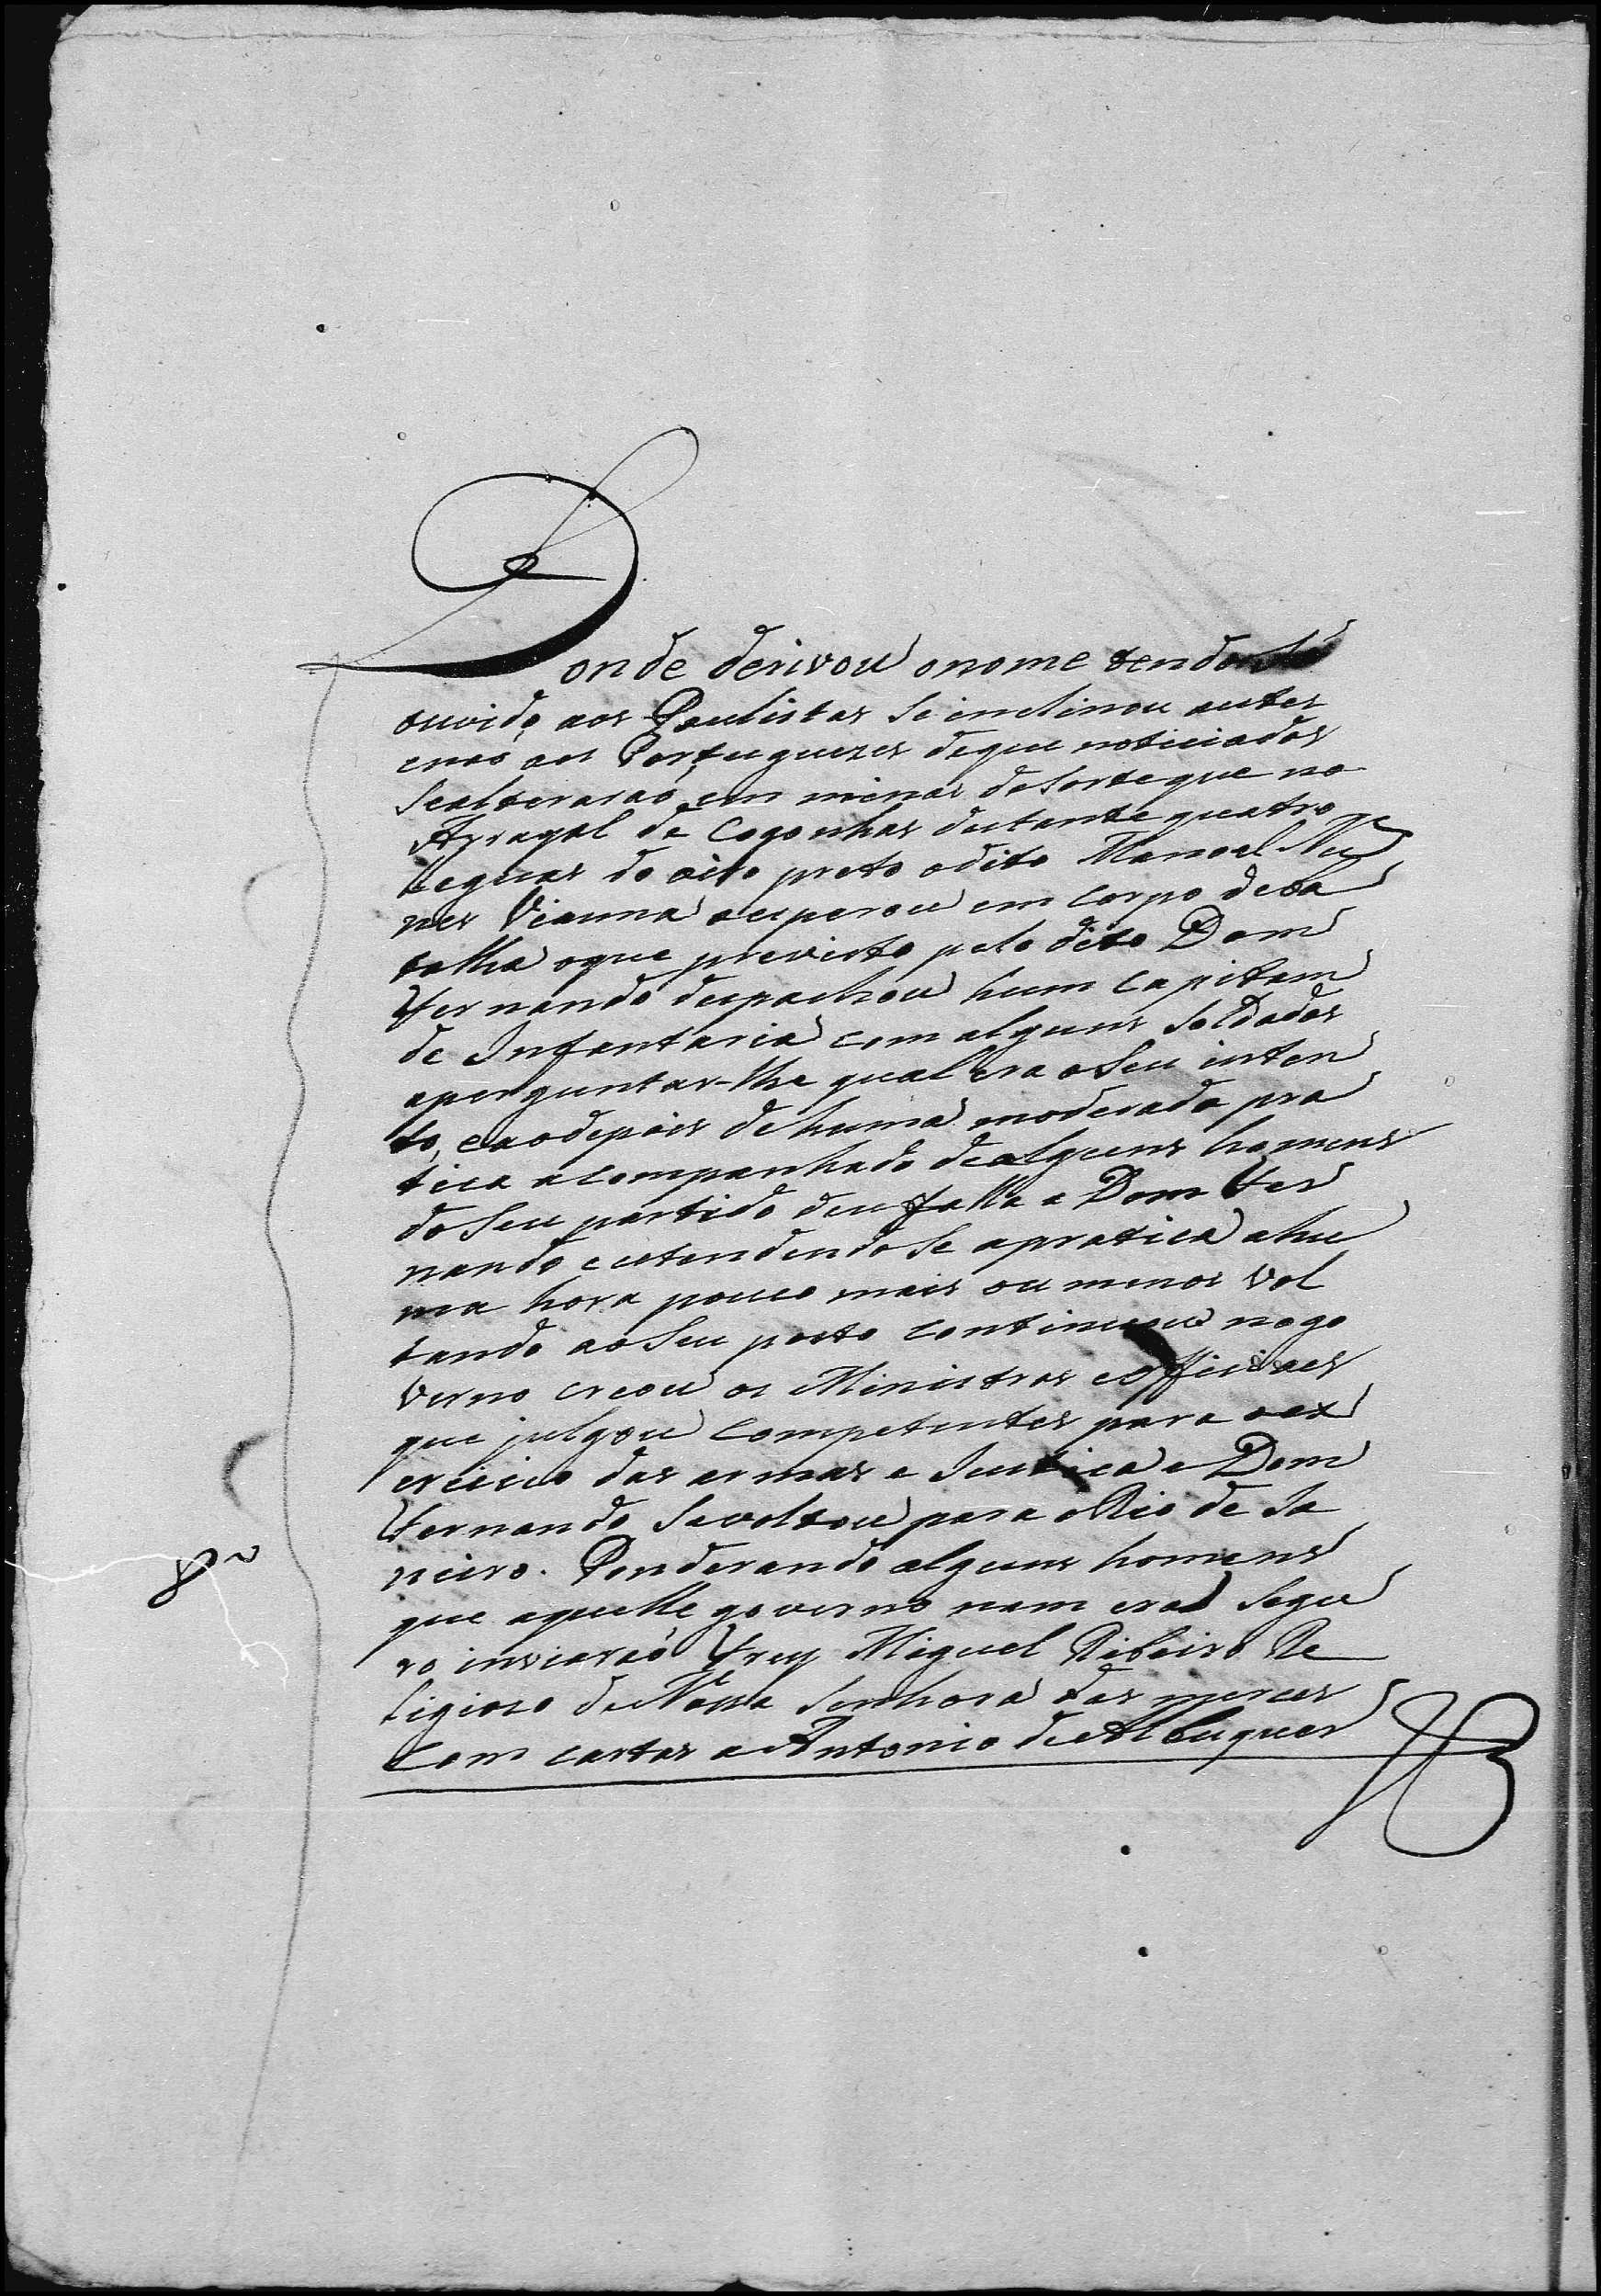 Donde derivou onome tendo Se
ouvido aos Paulistas Se inclinou a estes
enao aos Portuguezes deque noticiados
Sealterarao em minas deSorteque no
Arrayal de Cogonhas distante quatro
Legoas do oiro preto odito Manoel Nu
nes Vianna oesperou em Corpo deba
talha oque previsto pelo dito Dom
Fernando despachou hum Capitam
de Infantaria com alguns Soldados
aperguntar-lhe qual era oSeu inten
to, eaodepois de huma moderada pra
tica acompanhado dealguns homens
doSeu partido deu falla a Dom Fer
nando eestendendoSe apratica ahu
ma hora pouco mais ou menos Vol
tando aoSeu posto Continuou nogo
Verno creou os Ministros eOfficiaes
que julgou Competentes para oex
ercicio das armas e Justica e Dom
Fernando Sevoltou para oRio de Ja
neiro. Ponderando alguns homens
que aquelle governo nam era Segu
ro inviarao Frey Miguel Ribeiro Re
ligioso deNossa Senhora das merces
Com cartas a Antonio deAlbuquer
8º